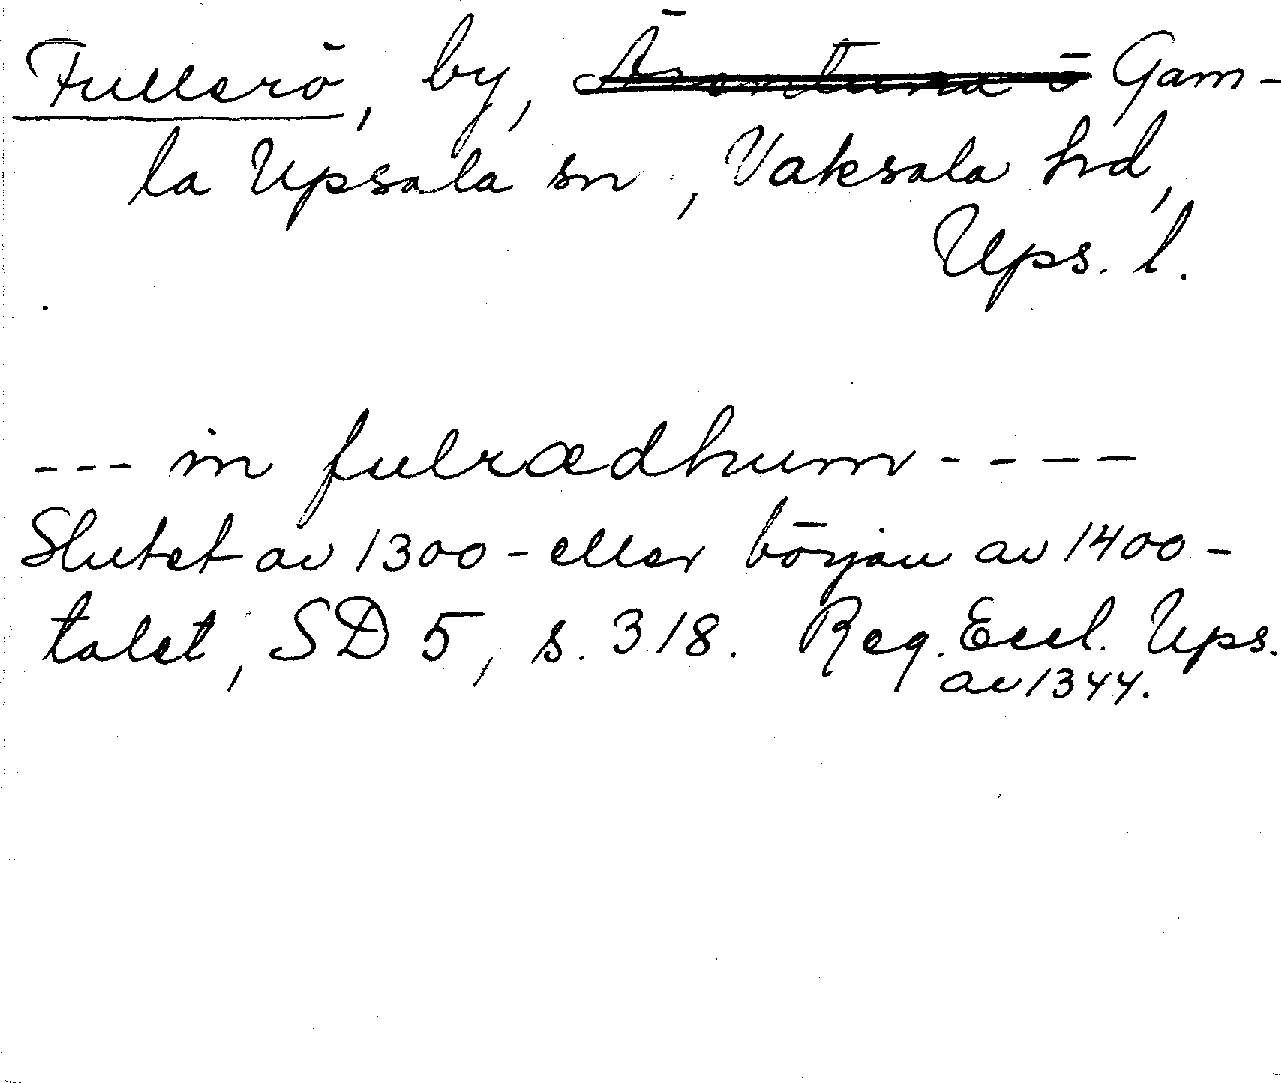 Fullerö, by, Gam-
la Upsala sn, Vaksala hd,
Ups. l.
--- in fulrædhum ----
Slutet av 1300- eller början av 1400-
talet, SD 5, s. 318. Reg. Eccl. Ups.
av 1344.